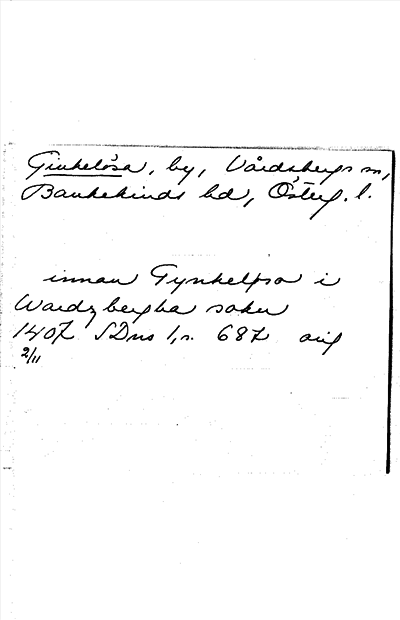 Ginkelösa, by, Vårdsbergs sn,
Bankekinds hd, Österg. l.
innan Gynkeløsa i
Wardzbergha sokn
1407 SDns 1, s. 687 orig
2/11